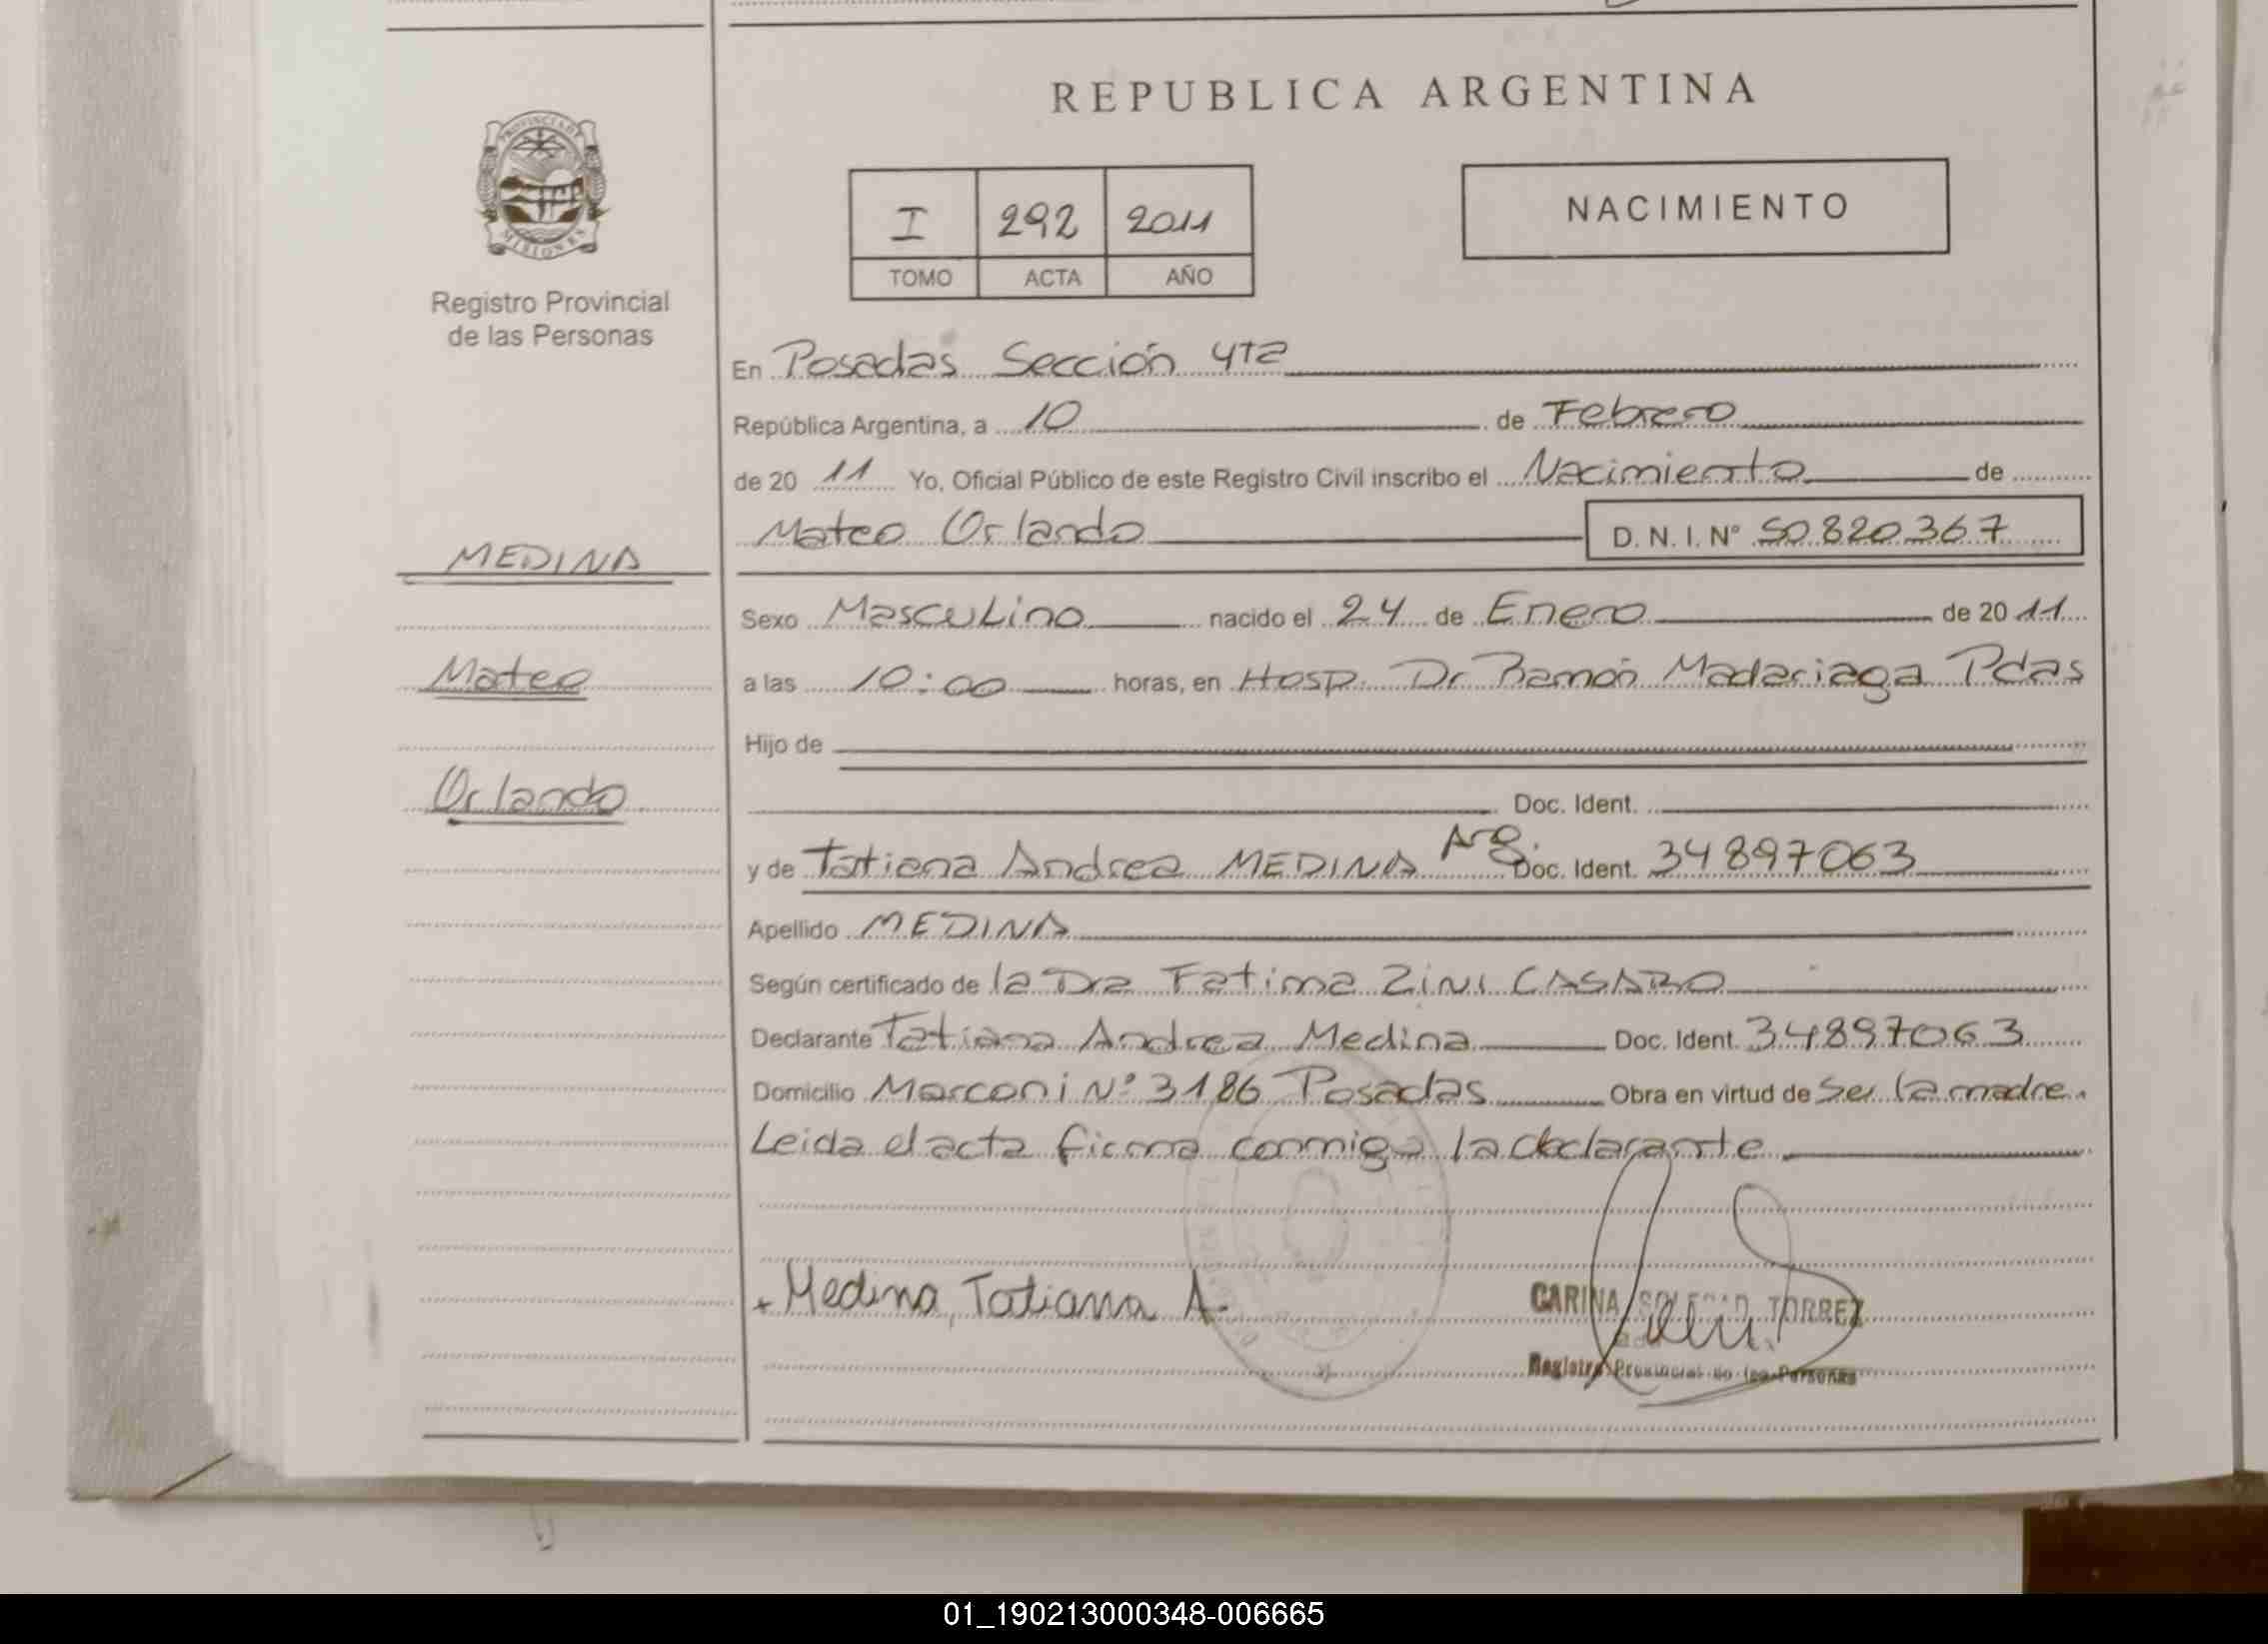 REPUBLICA ARGENTINA
PROVINCIA DE
MISIONES
Registro Provincial
de las Personas
I 292 2011
TOMO ACTA AÑO
NACIMIENTO
En Posadas Sección 4ta
República Argentina, a 10 de Febrero
de 20 11 Yo, Oficial Público de este Registro Civil inscribo el Nacimiento de
Mateo Orlando D. N. I. N° 50.820.367
MEDINA
Sexo Masculino nacido el 24 de Enero de 20 11
Mateo
a las 10:00 horas, en Hosp. Dr Ramón Madariaga Pdas
Hijo de
Orlando
Doc. Ident.
y de Tatiana Andrea MEDINA Arg. Doc. Ident. 34897063
Apellido MEDINA
Según certificado de la Dra Fatima Zini CASARO
Declarante Tatiana Andrea Medina Doc. Ident. 34897063
Domicilio Marconi N° 3186 Posadas Obra en virtud de Ser la madre.
Leida el acta firma conmigo la declarante
+ Medina, Tatiana A.
CARINA SOLEDAD TORREZ
Registro Provincial de las Personas
01_190213000348-006665